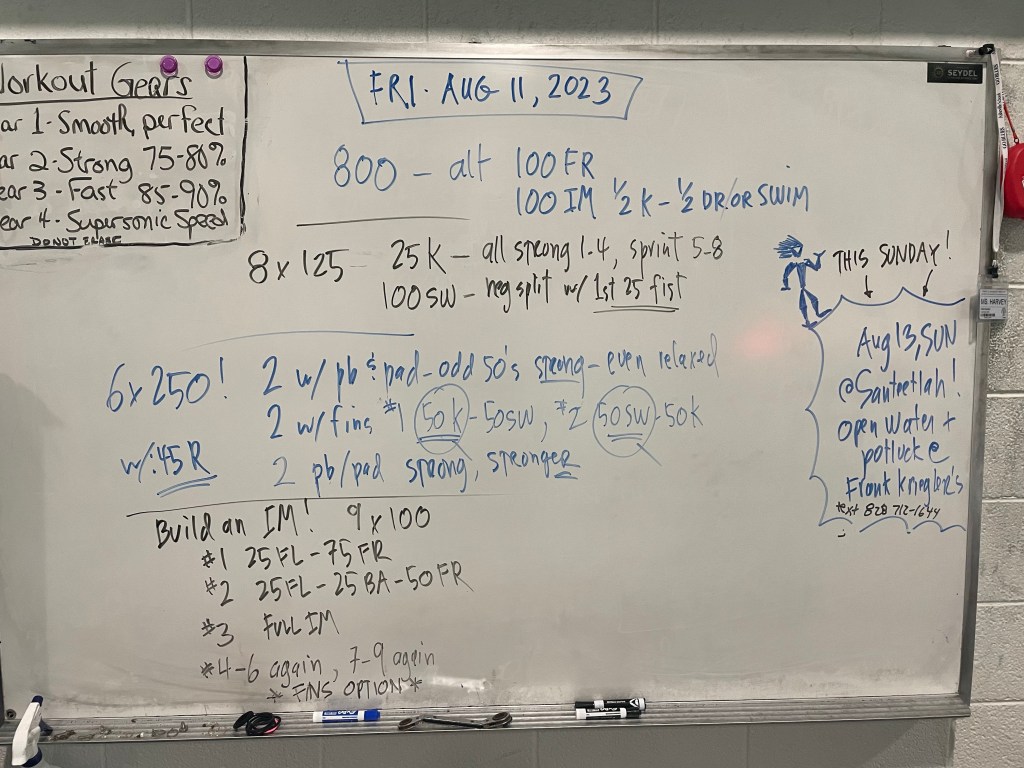 Workout Gears
ar 1 - Smooth, perfect
ar 2 - Strong 75-80%
ear 3 - Fast 85-90%
ear 4 - Supersonic Speed
DO NOT ERASE
FRI. AUG 11, 2023
SEYDEL
800 - alt 100 FR
100 IM ½ K - ½ DR/OR SWIM
8 x 125 - 25 K - all strong 1-4, sprint 5-8
100 SW - neg split w/ 1st 25 fist
6 x 250! 2 w/ pb & pad - odd 50's strong - even relaxed
2 w/ fins #1 50 K - 50 SW, #2 50 SW - 50 K
w/ :45 R 2 pb/pad strong, stronger
Build an IM! 9 x 100
#1 25 FL - 75 FR
#2 25 FL - 25 BA - 50 FR
#3 FULL IM
#4-6 again, 7-9 again
* FINS OPTION *
THIS SUNDAY!
Aug 13, SUN
@Santeetlah!
open water +
potluck @
Frank
text 828 712-1644
MS. HARVEY